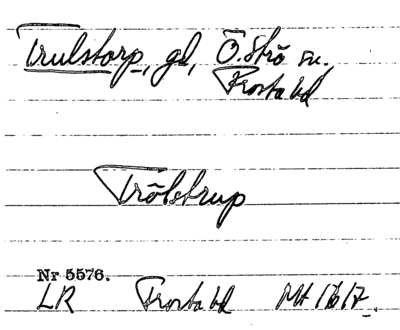 Trulstorp, gd, Ö. Strö sn.,
Frosta hd
Trölstrup
Nr 5576.
LR Frosta hd Mt 1617.